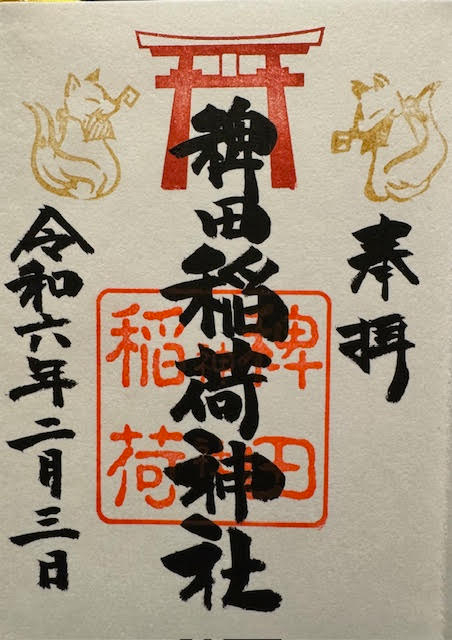 奉拝
稗田稲荷神社
令和六年二月三日
稗田
稲荷